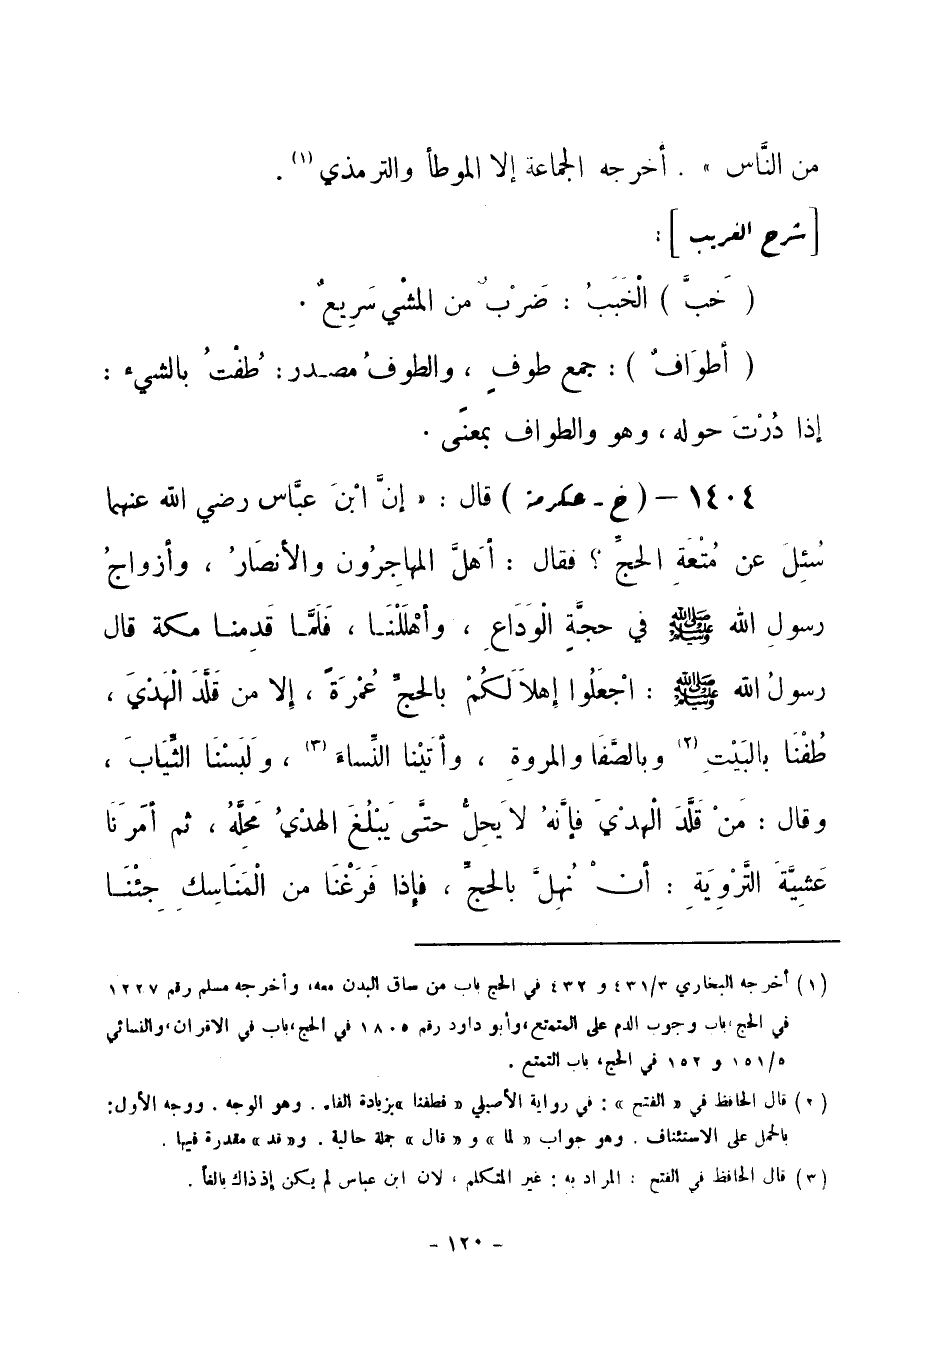 من النَّاس » . أخرجه الجماعة إلا الموطأ والترمذي (١) .
[ شرح الغريب ] :
( خَبَّ ) الْخَبَبُ : ضَرْبٌ من المشْي سَرِيعٌ .
( أطوَافٌ ) : جمع طوفٍ ، والطوفُ مصـدر : طُفْتُ بالشيء :
إذا دُرْتَ حوله ، وهو والطواف بمعنًى .
١٤٠٤ – ( خ ـ عكرمة ) قال : « إنَّ ابْنَ عبَّاس رضي الله عنهما
سُئِلَ عن مُتْعَةِ الحجِّ ؟ فقال : أهَلَّ المهاجِرُون والأنصَارُ ، وأزواجُ
رسولِ الله ﷺ في حجَّةِ الْوَدَاعِ ، وأهْلَلْنَـا ، فَلَمَّـا قَدِمنـا مـكة قال
رسولُ الله ﷺ : اجْعَلُوا إهلاَلَكُمْ بالحجِّ عُمْرَةً ، إلا من قَلَّدَ الْهَدْيَ ،
طُفْنَا بالبَيْتِ (٢) وبالصَّفَا والمروةِ ، وأتَيْنا النِّساءَ (٣) ، ولَبَسْنَا الثِّيَابَ ،
وقال : مَنْ قَلَّدَ الْهدْيَ فإنَّهُ لا يَحِلُّ حتَّى يَبْلُغَ الهدْيُ مَحِلَّهُ ، ثم أمَرَنَا
عَشِيَّةَ التَّرْوِيَةِ : أنْ نُهِلَّ بالحجِّ ، فإذا فَرَغْنَا من الْمَنَاسِكِ جِئْنَـا
(١) أخرجه البخاري ٤٣١/٣ و ٤٣٢ في الحج باب من ساق البدن معه، وأخرجه مسلم رقم ١٢٢٧
في الحج ،باب وجوب الدم على المتمتع،وأبو داود رقم ١٨٠٥ في الحج ،باب في الاقران ،والنسائي
١٥١/٥ و ١٥٢ في الحج، باب التمتع .
(٢) قال الحافظ في « الفتح » : في رواية الأصيلي « فطفنا »بزيادة الفاء . وهو الوجه . ووجه الأول:
بالحمل على الاستئناف . وهو جواب « لما » و « قال » جملة حالية . و« قد » مقدرة فيها .
(٣) قال الحافظ في الفتح : المراد به : غير المتكلم ، لان ابن عباس لم يكن إذ ذاك بالغاً .
- ١٢٠ -